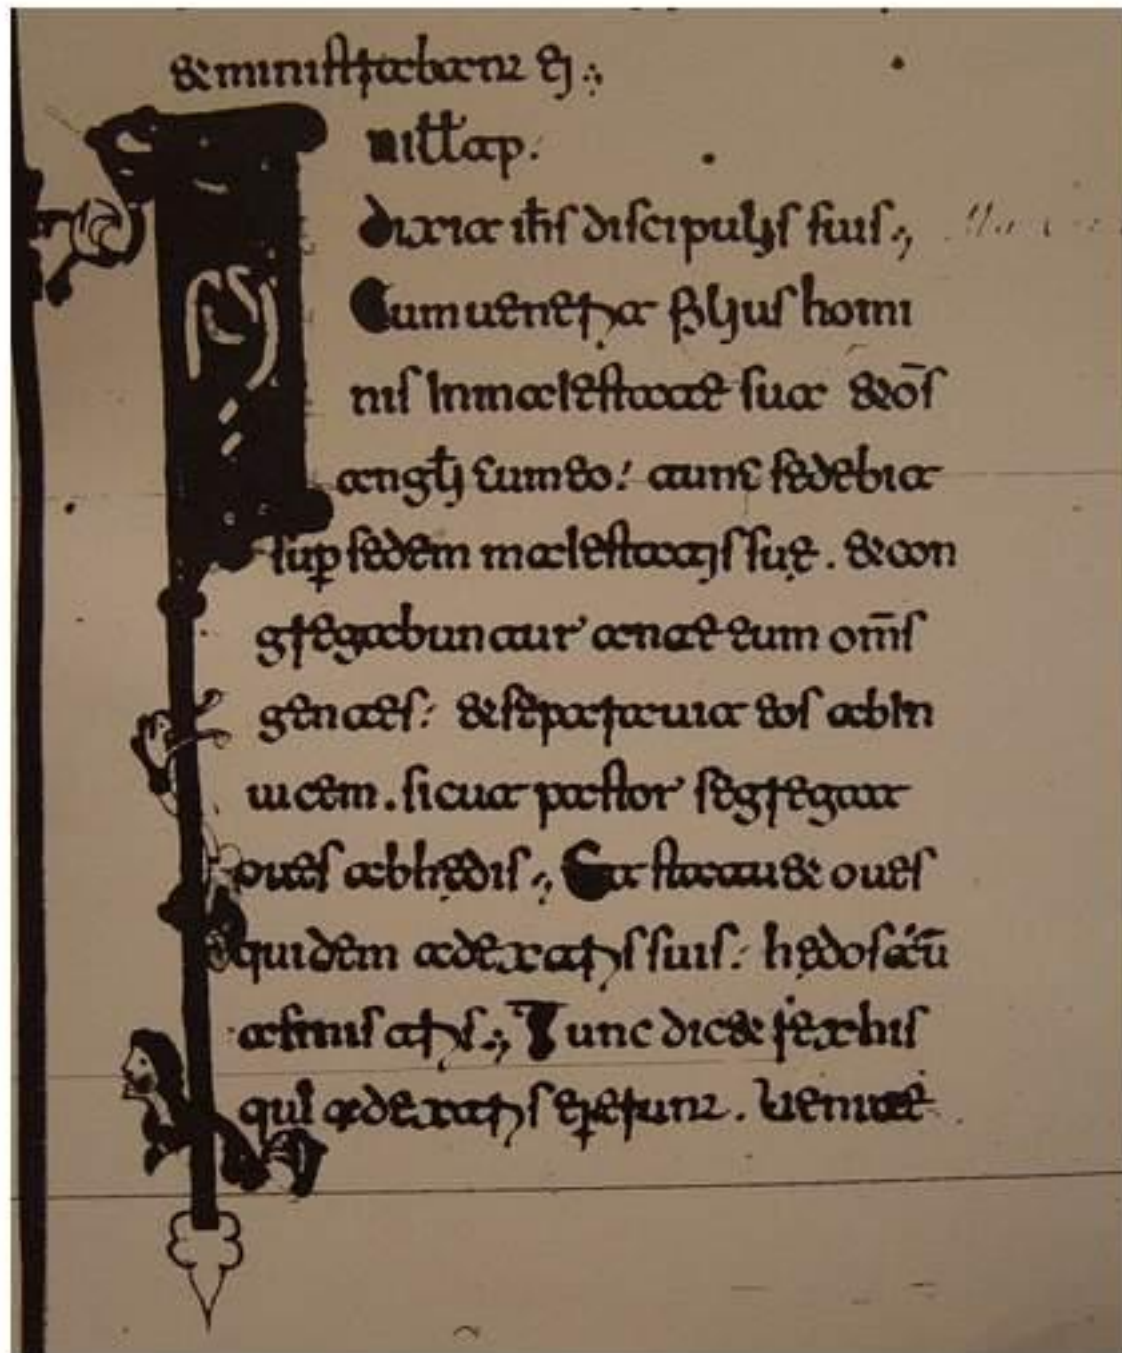 &ministrabant ei.,
In illo temp.
dixit ihs discipulis suis.,
Cum uenerit filius homi
nis In maiestate sua &oms
angli cum eo: tunc sedebit
sup sedem maiestatis suę. &con
gregabuntur ante eum oms
gentes: &separauit eos abIn
uicem. sicut pastor segregat
oues abhędis., Et statu& oues
quidem adextris suis: hędos aut
asinistris., Tunc dic& rex his
qui adextris ei erunt. Uenite